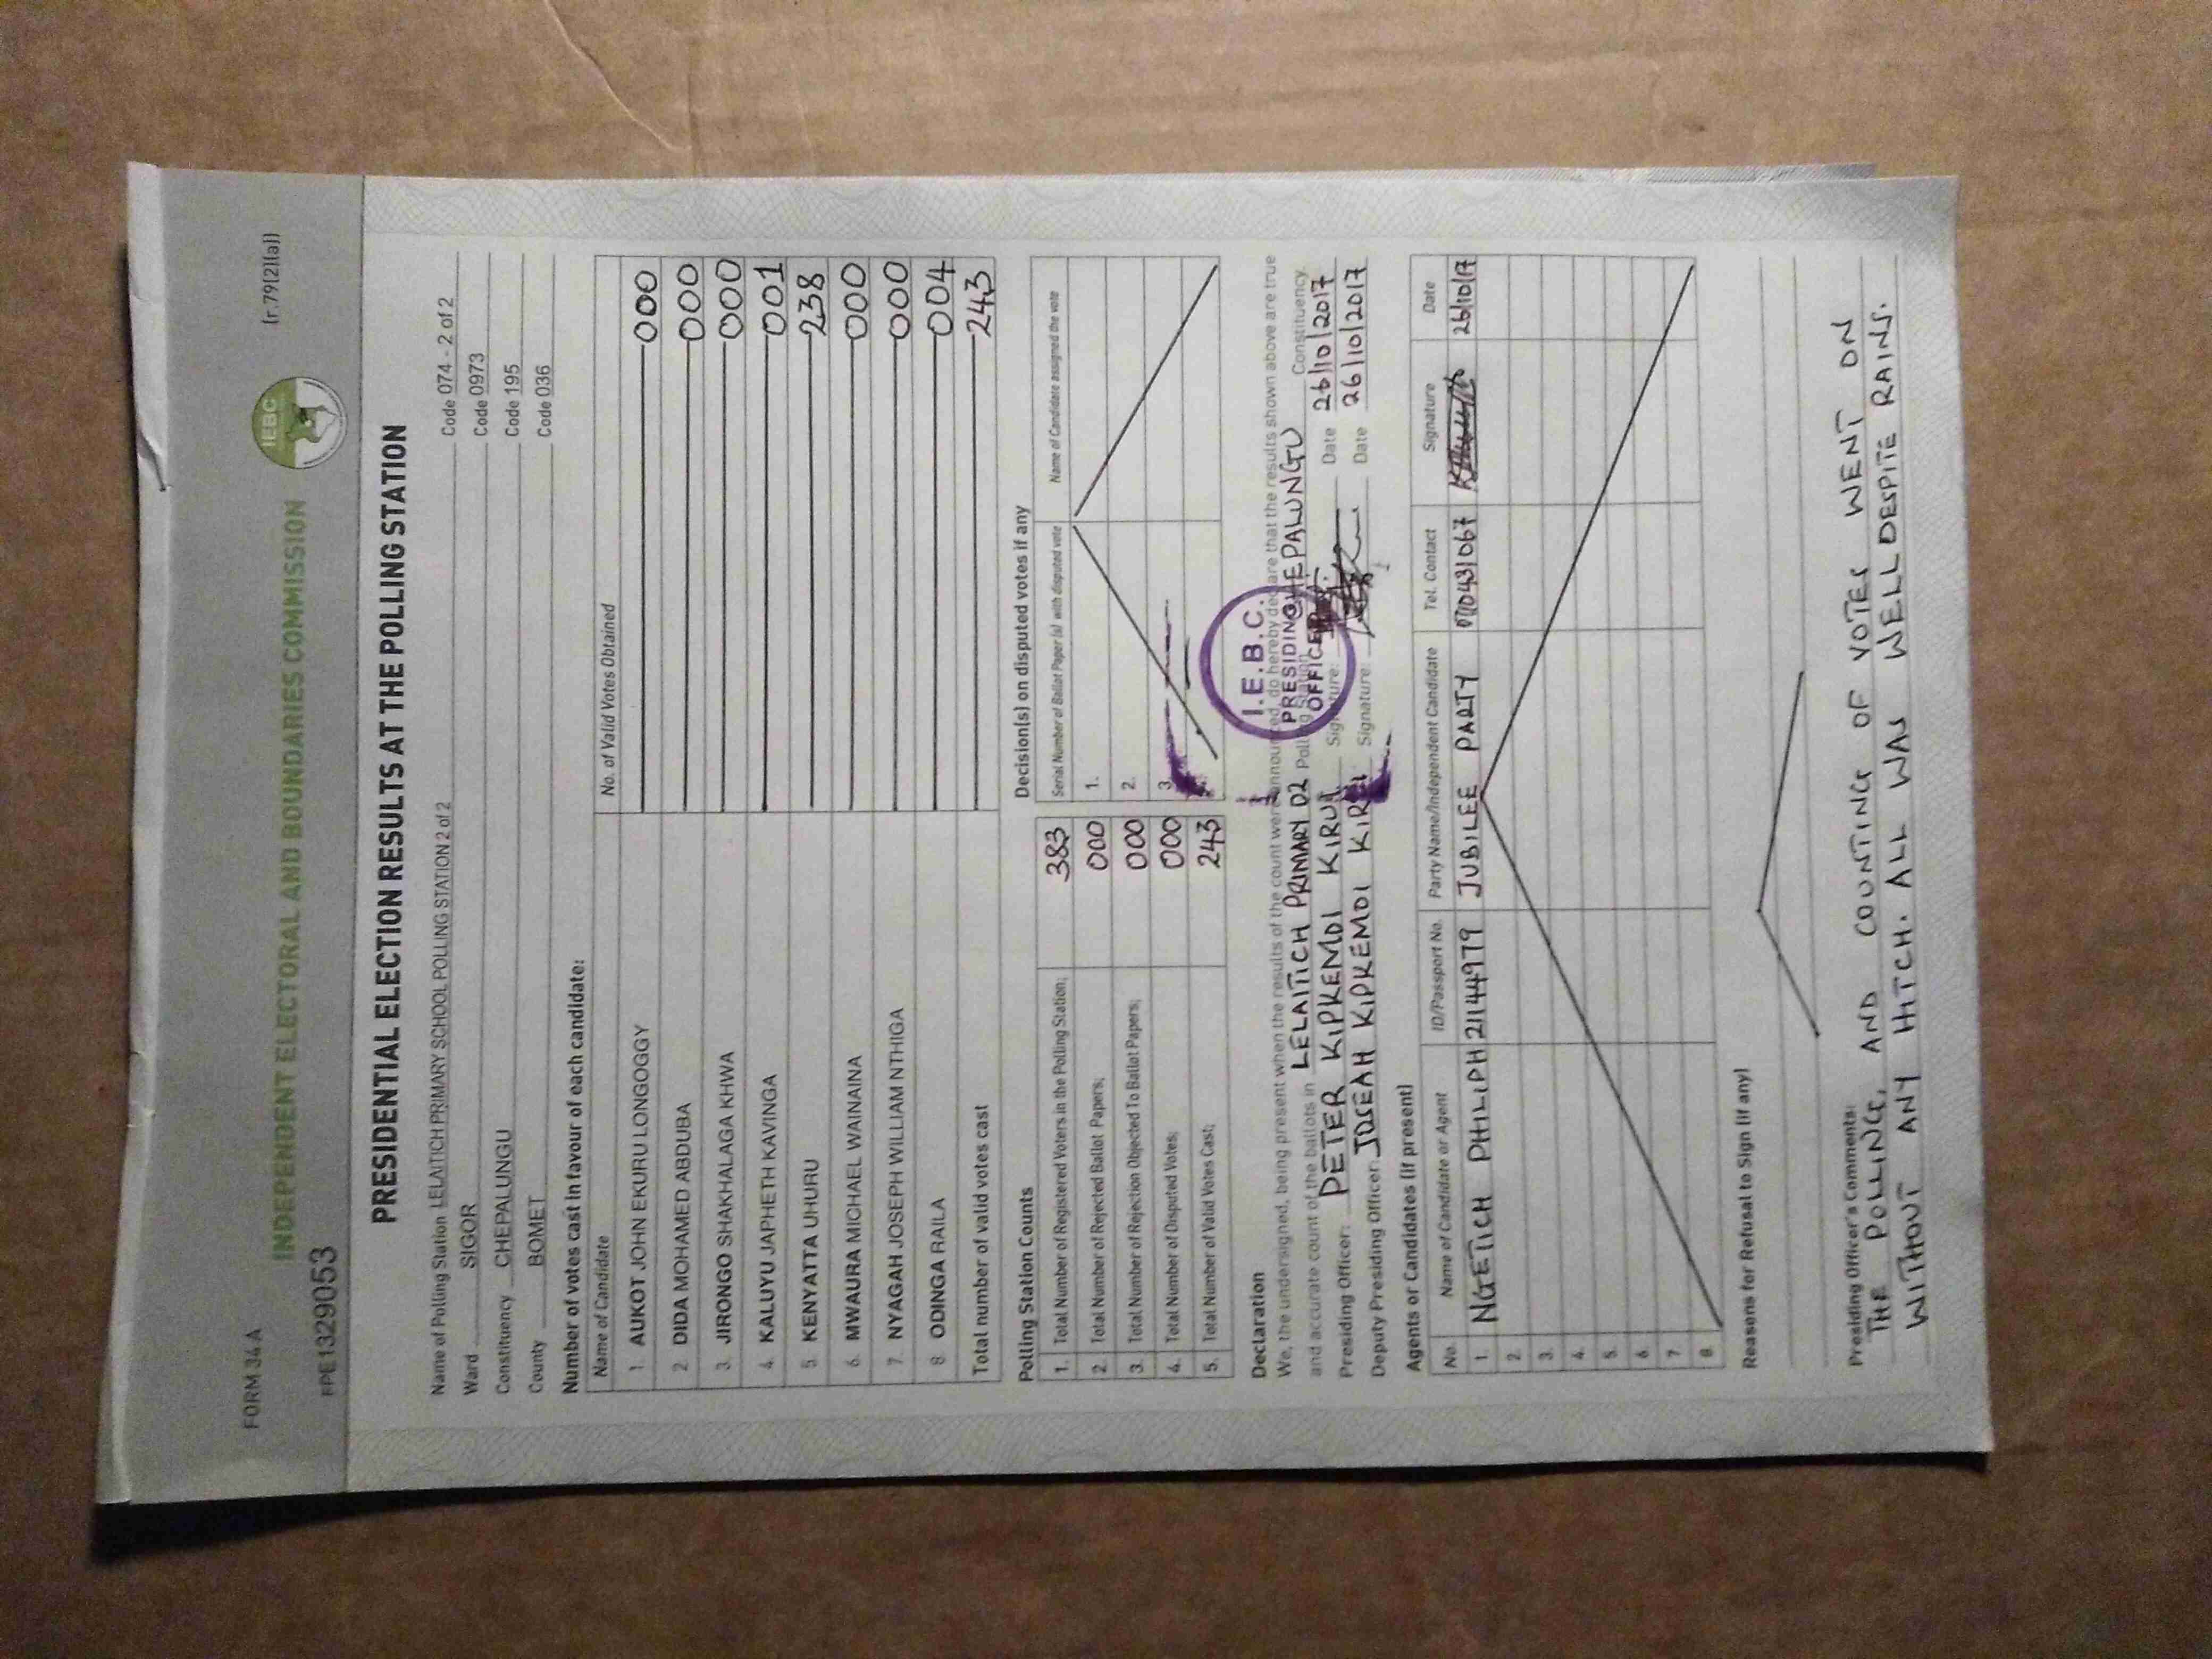 FORM 34A
(r.79(2)(a))
FPE1329053
INDEPENDENT ELECTORAL AND BOUNDARIES COMMISSION
IEBC
PRESIDENTIAL ELECTION RESULTS AT THE POLLING STATION
Name of Polling Station LELAITICH PRIMARY SCHOOL POLLING STATION 2 of 2 Code 074 - 2 of 2
Ward SIGOR Code 0973
Constituency CHEPALUNGU Code 195
County BOMET Code 036
Number of votes cast in favour of each candidate:
Name of Candidate No. of Valid Votes Obtained
1. AUKOT JOHN EKURU LONGOGGY 000
2. DIDA MOHAMED ABDUBA 000
3. JIRONGO SHAKHALAGA KHWA 000
4. KALUYU JAPHETH KAVINGA 001
5. KENYATTA UHURU 238
6. MWAURA MICHAEL WAINAINA 000
7. NYAGAH JOSEPH WILLIAM NTHIGA 000
8 ODINGA RAILA 004
Total number of valid votes cast 243
Polling Station Counts
1. Total Number of Registered Voters in the Polling Station; 383
2. Total Number of Rejected Ballot Papers; 000
3. Total Number of Rejection Objected To Ballot Papers; 000
4. Total Number of Disputed Votes; 000
5. Total Number of Valid Votes Cast; 243
Decision(s) on disputed votes if any
Serial Number of Ballot Paper (s) with disputed vote Name of Candidate assigned the vote
1.
2.
3.
I.E.B.C.
PRESIDING
OFFICER
Declaration
We, the undersigned, being present when the results of the count were announced, do hereby declare that the results shown above are true
and accurate count of the ballots in LELAITICH PRIMARY 02 Polling Station CHEPALUNGU Constituency.
Presiding Officer: PETER KIPKEMOI KIRUI Signature: Date 26/10/2017
Deputy Presiding Officer: JOSEAH KIPKEMOI Signature: Date 26/10/2017
Agents or Candidates (if present)
No. Name of Candidate or Agent ID/Passport No. Party Name/Independent Candidate Tel. Contact Signature Date
1. NGETICH PHILIPH 21144979 JUBILEE PARTY 26/10/17
2.
3.
4.
5.
6.
7.
8.
Reasons for Refusal to Sign (if any)
Presiding Officer's Comments:
THE POLLING, AND COUNTING OF VOTES WENT ON
WITHOUT ANY HITCH. ALL WAS WELL DESPITE RAINS.